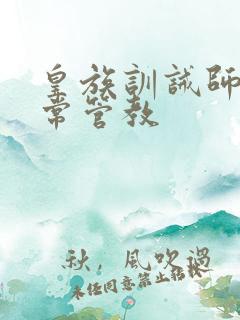 皇族訓誡師
常管教
秋，風吹過
未任同意禁止轉以